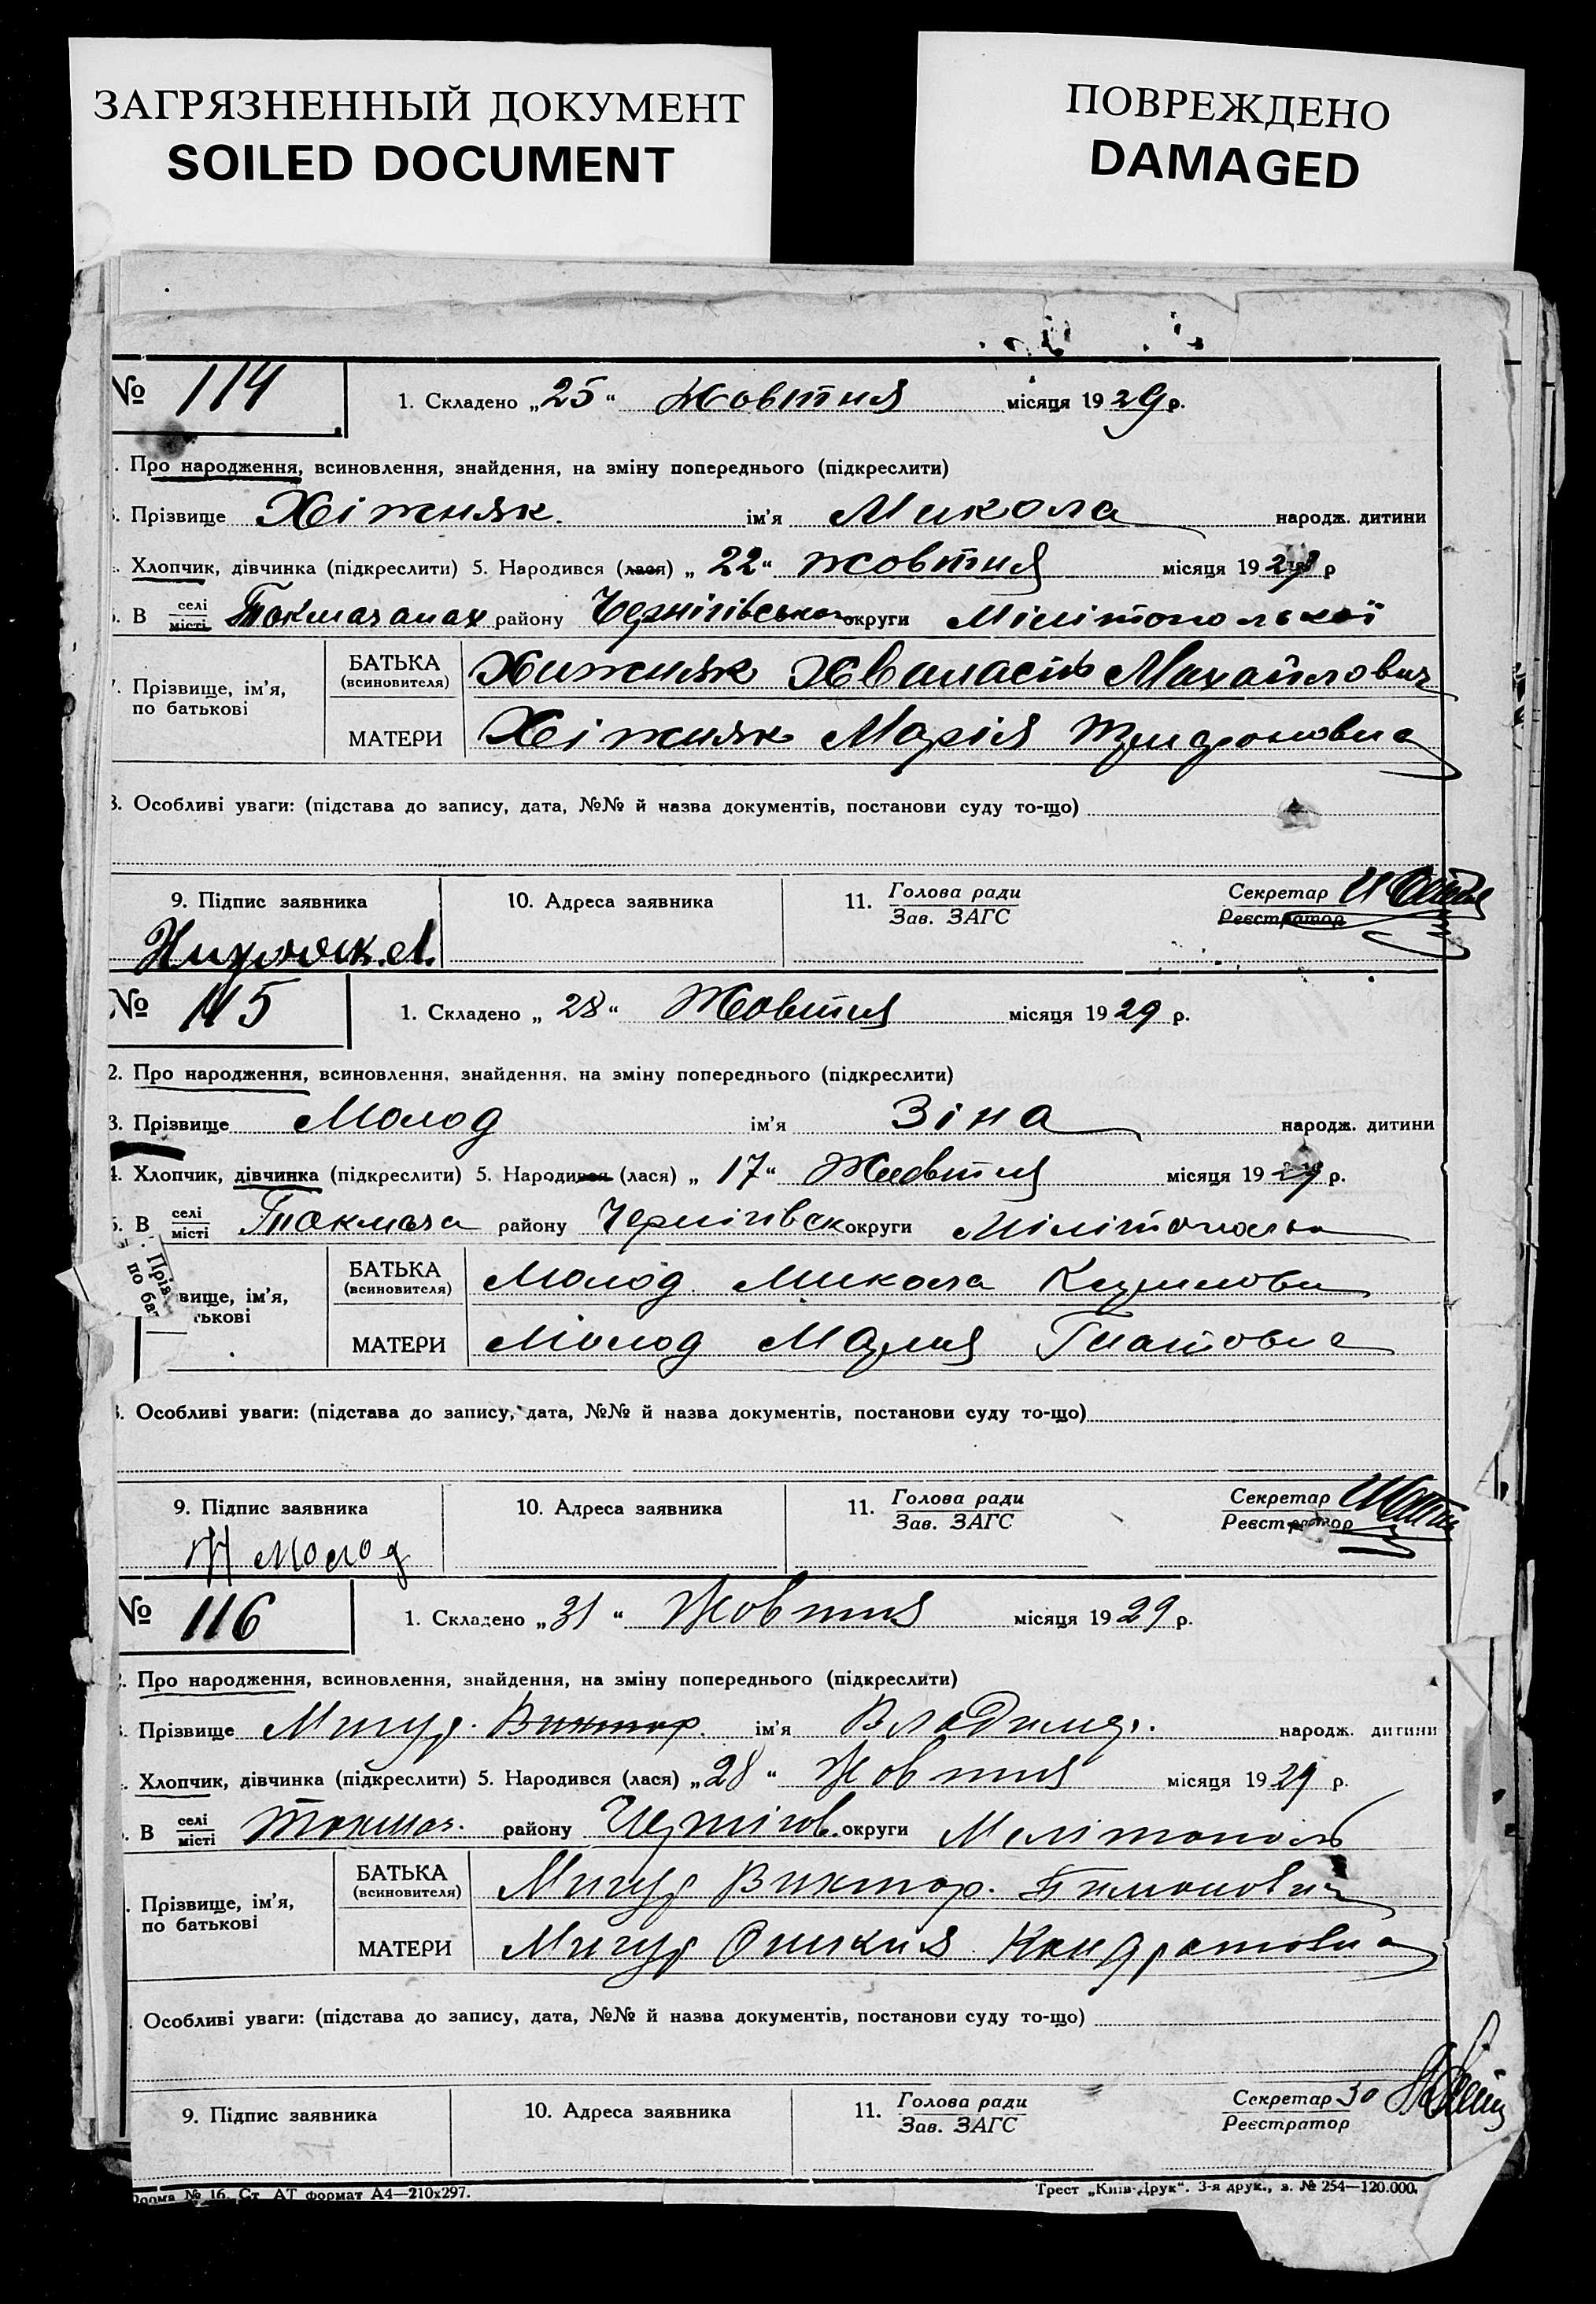 ЗАГРЯЗНЕННЫЙ ДОКУМЕНТ
SOILED DOCUMENT
ПОВРЕЖДЕНО
DAMAGED
№ 114
1. Складено „25“ Жовтня місяця 1929 р.
. Про народження, всиновлення, знайдення, на зміну попереднього (підкреслити)
. Прізвище Хіжняк. ім'я Микола народж. дитини
. Хлопчик, дівчинка (підкреслити) 5. Народився (лася) „22“ жовтня місяця 1929 р
. В селі/місті району Чернігівської округи Мілітопольської
7. Прізвище, ім'я, по батькові
БАТЬКА (всиновителя) Хижняк Михайлович
МАТЕРИ Хіжняк Марія
8. Особливі уваги: (підстава до запису, дата, №№ й назва документів, постанови суду то-що)
9. Підпис заявника
10. Адреса заявника
11. Голова ради
Зав. ЗАГС
Секретар
Реєстратор
№ 115
1. Складено „28“ Жовтня місяця 1929 р.
2. Про народження, всиновлення, знайдення, на зміну попереднього (підкреслити)
3. Прізвище Молод ім'я Зіна народж. дитини
4. Хлопчик, дівчинка (підкреслити) 5. Народився (лася) „17“ Жовтня місяця 1929 р.
. В селі/місті Токмача району Чернігівск округи
вище, ім'я,
тькові
. Прізв
по бат
БАТЬКА (всиновителя) Молод Микола
МАТЕРИ Молод Мария
. Особливі уваги: (підстава до запису, дата, №№ й назва документів, постанови суду то-що)
9. Підпис заявника
Молод
10. Адреса заявника
11. Голова ради
Зав. ЗАГС
Секретар
Реєстратор
№ 116
1. Складено „31“ Жовтня місяця 1929 р.
. Про народження, всиновлення, знайдення, на зміну попереднього (підкреслити)
. Прізвище Виктор ім'я Владимір. народж. дитини
. Хлопчик, дівчинка (підкреслити) 5. Народився (лася) „28“ Жовтня місяця 1929 р.
. В селі/місті Токмач. району Чернігов. округи Мелітополь
. Прізвище, ім'я,
по батькові
БАТЬКА (всиновителя) Виктор.
МАТЕРИ Кондратовна
. Особливі уваги: (підстава до запису, дата, №№ й назва документів, постанови суду то-що)
9. Підпис заявника
10. Адреса заявника
11. Голова ради
Зав. ЗАГС
Секретар
Реєстратор
Форма № 16. Ст. АТ формат А4—210х297.
Трест „Київ-Друк“. 3-я друк., з. № 254—120.000.